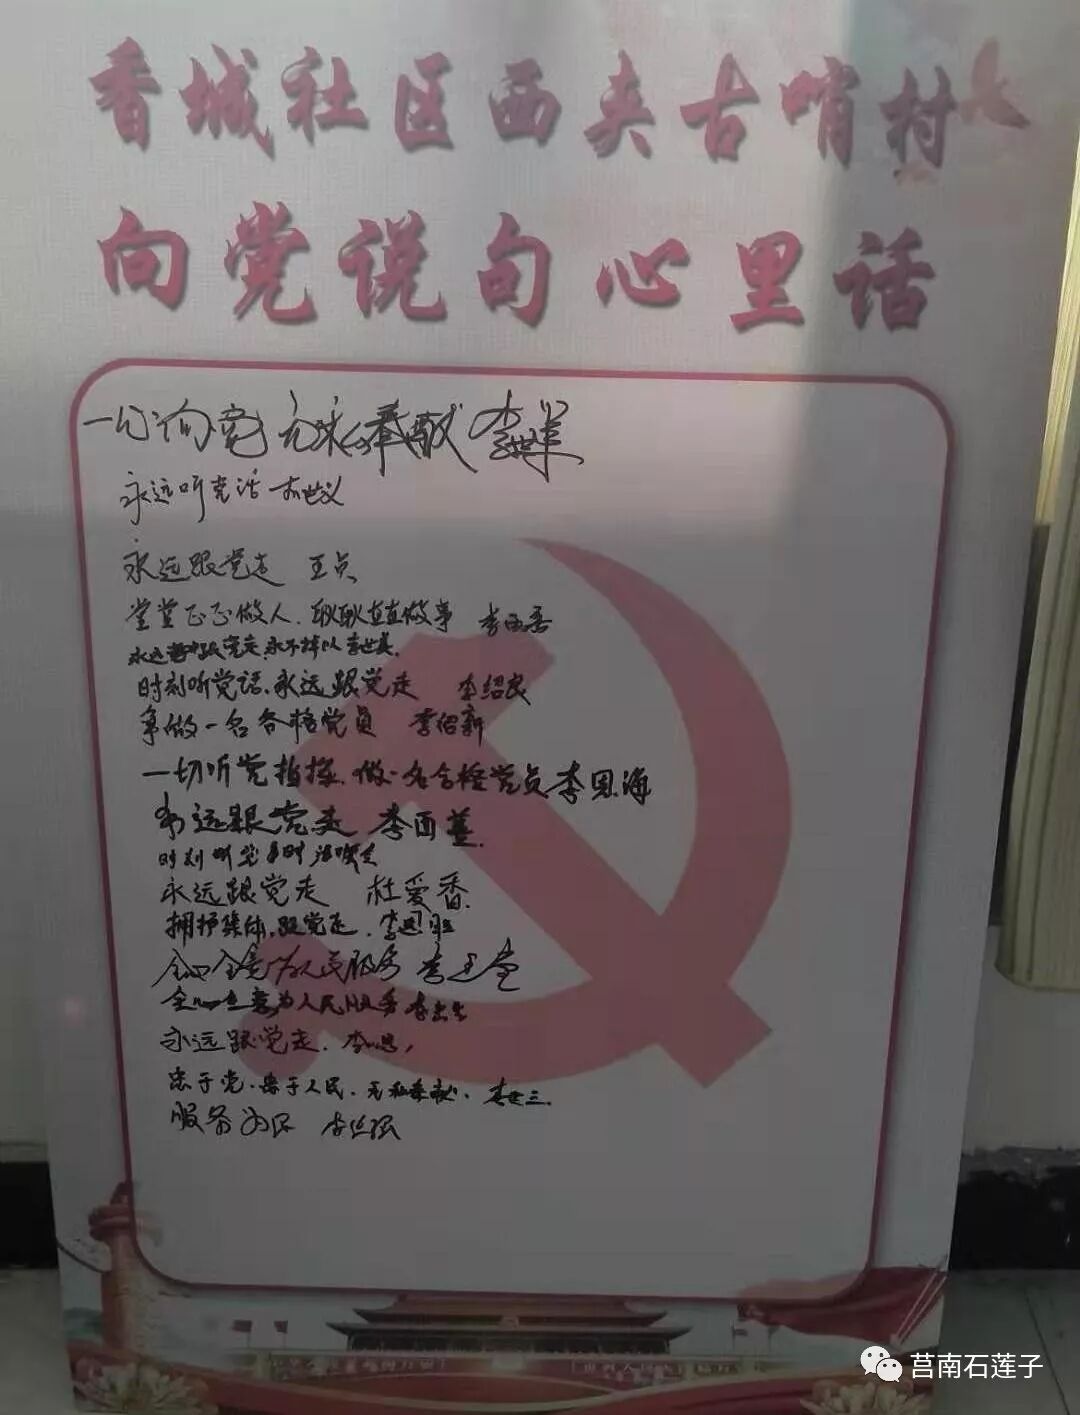 香城社区西夹古哨村
向党说句心里话
一心向党 无私奉献 李世军
永远听党话 李世义
永远跟党走 王贞
堂堂正正做人、耿耿直直做事 李西
永远跟党走、永不掉队 李世
时刻听党话、永远跟党走 李绍良
争做一名合格党员 李绍新
一切听党指挥、做一名合格党员 李恩海
永远跟党走 李西
时刻听党
永远跟党走 杜爱香
拥护集体,跟党走. 李恩
全心全意为人民服务 李
全心全意为人民服务 李
永远跟党走. 李
忠于党.忠于人民.无私奉献. 李世三
服务为民 李
莒南石莲子